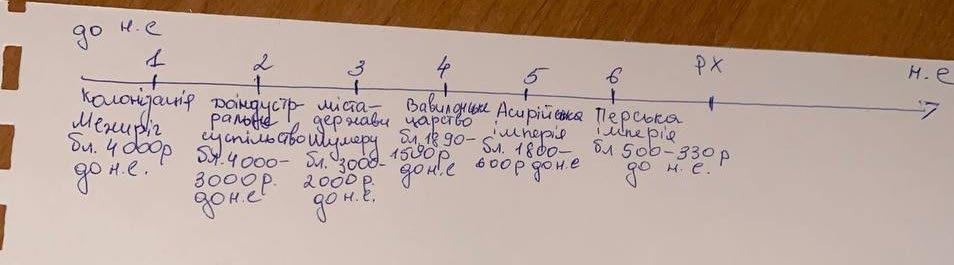 до н.е
1 2 3 4 5 6 РХ н.е
Колонізація
Межиріг
бл. 4000р
до н.е.
доіндустр-
ральне
суспільство
бл. 4000-
3000р.
до н.е
міста-
держави
Шумеру
бл. 3000-
2000р.
до н.е.
Вавилонське
царство
бл. 1890-
1500р.
до н.е
Асирійська
імперія
бл. 1800-
600р до н.е
Перська
імперія
бл 500-330р
до н.е.